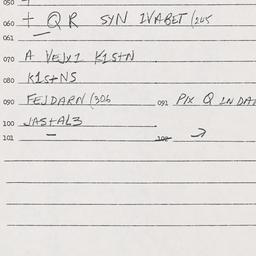 050
060 + QR SYN IVABET (205
061
070 A VEJXI K1S+N
080 K1S+NS
090 FEJDARN (306 091 PIX Q IN DA
100 JAS+AL3
101 102 →